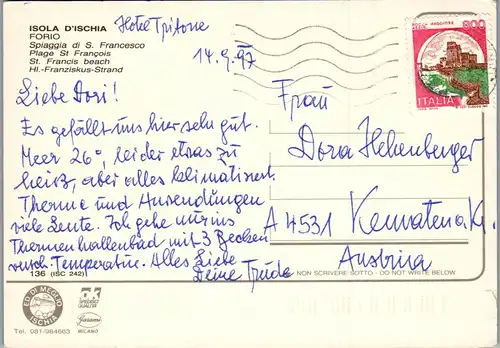 ISOLA D'ISCHIA
FORIO
Spiaggia di S. Francesco
Plage St François
St. Francis beach
Hl.-Franziskus-Strand
Hotel Tritone
14.9.97
Liebe Dori!
Es gefällt uns hier sehr gut.
Meer 26°, leider etwas zu
heiß, aber alles klimatisiert.
Therme und Anwendungen
viele Leute. Ich gehe nur ins
Thermenhallenbad mit 3 Becken
versch. Temperatur. Alles Liebe
Deine Trude
136 (ISC 242)
ED. DI MEGLIO
ISCHIA
Tel. 081-984663
MILANO
800
ITALIA
Frau
Dora Hehenberger
A 4531 Kematen a.K.
Austria
NON SCRIVERE SOTTO - DO NOT WRITE BELOW